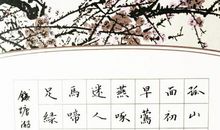 孤山
面初
早鶯
燕啄
迷人
馬啼
足綠
錢塘湖